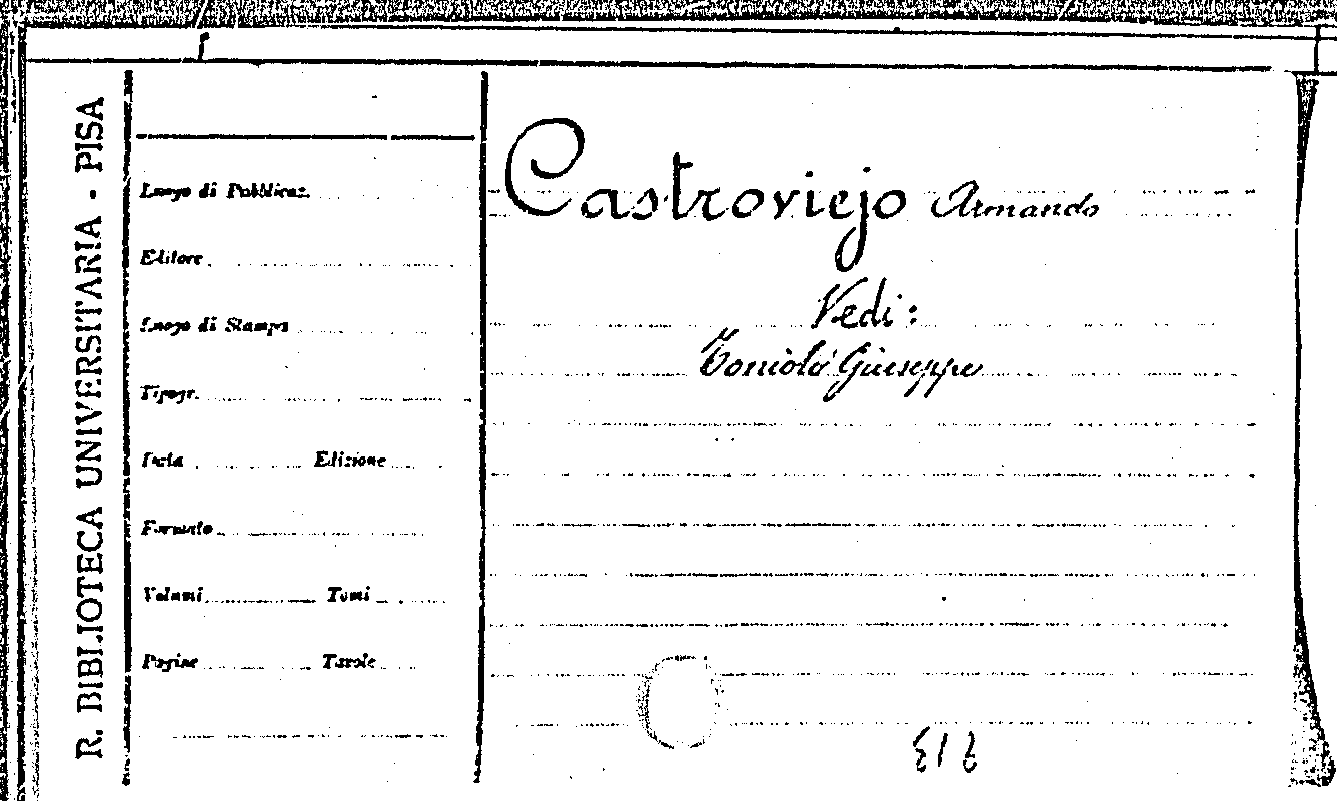 R. BIBLIOTECA UNIVERSITARIA - PISA
Luogo di Pubblicaz.
Editore
Luogo di Stampa
Tipogr.
Data Edizione
Formato
Volumi Tomi
Pagine Tavole
Castroviejo Armando
Vedi:
Toniolo Giuseppe